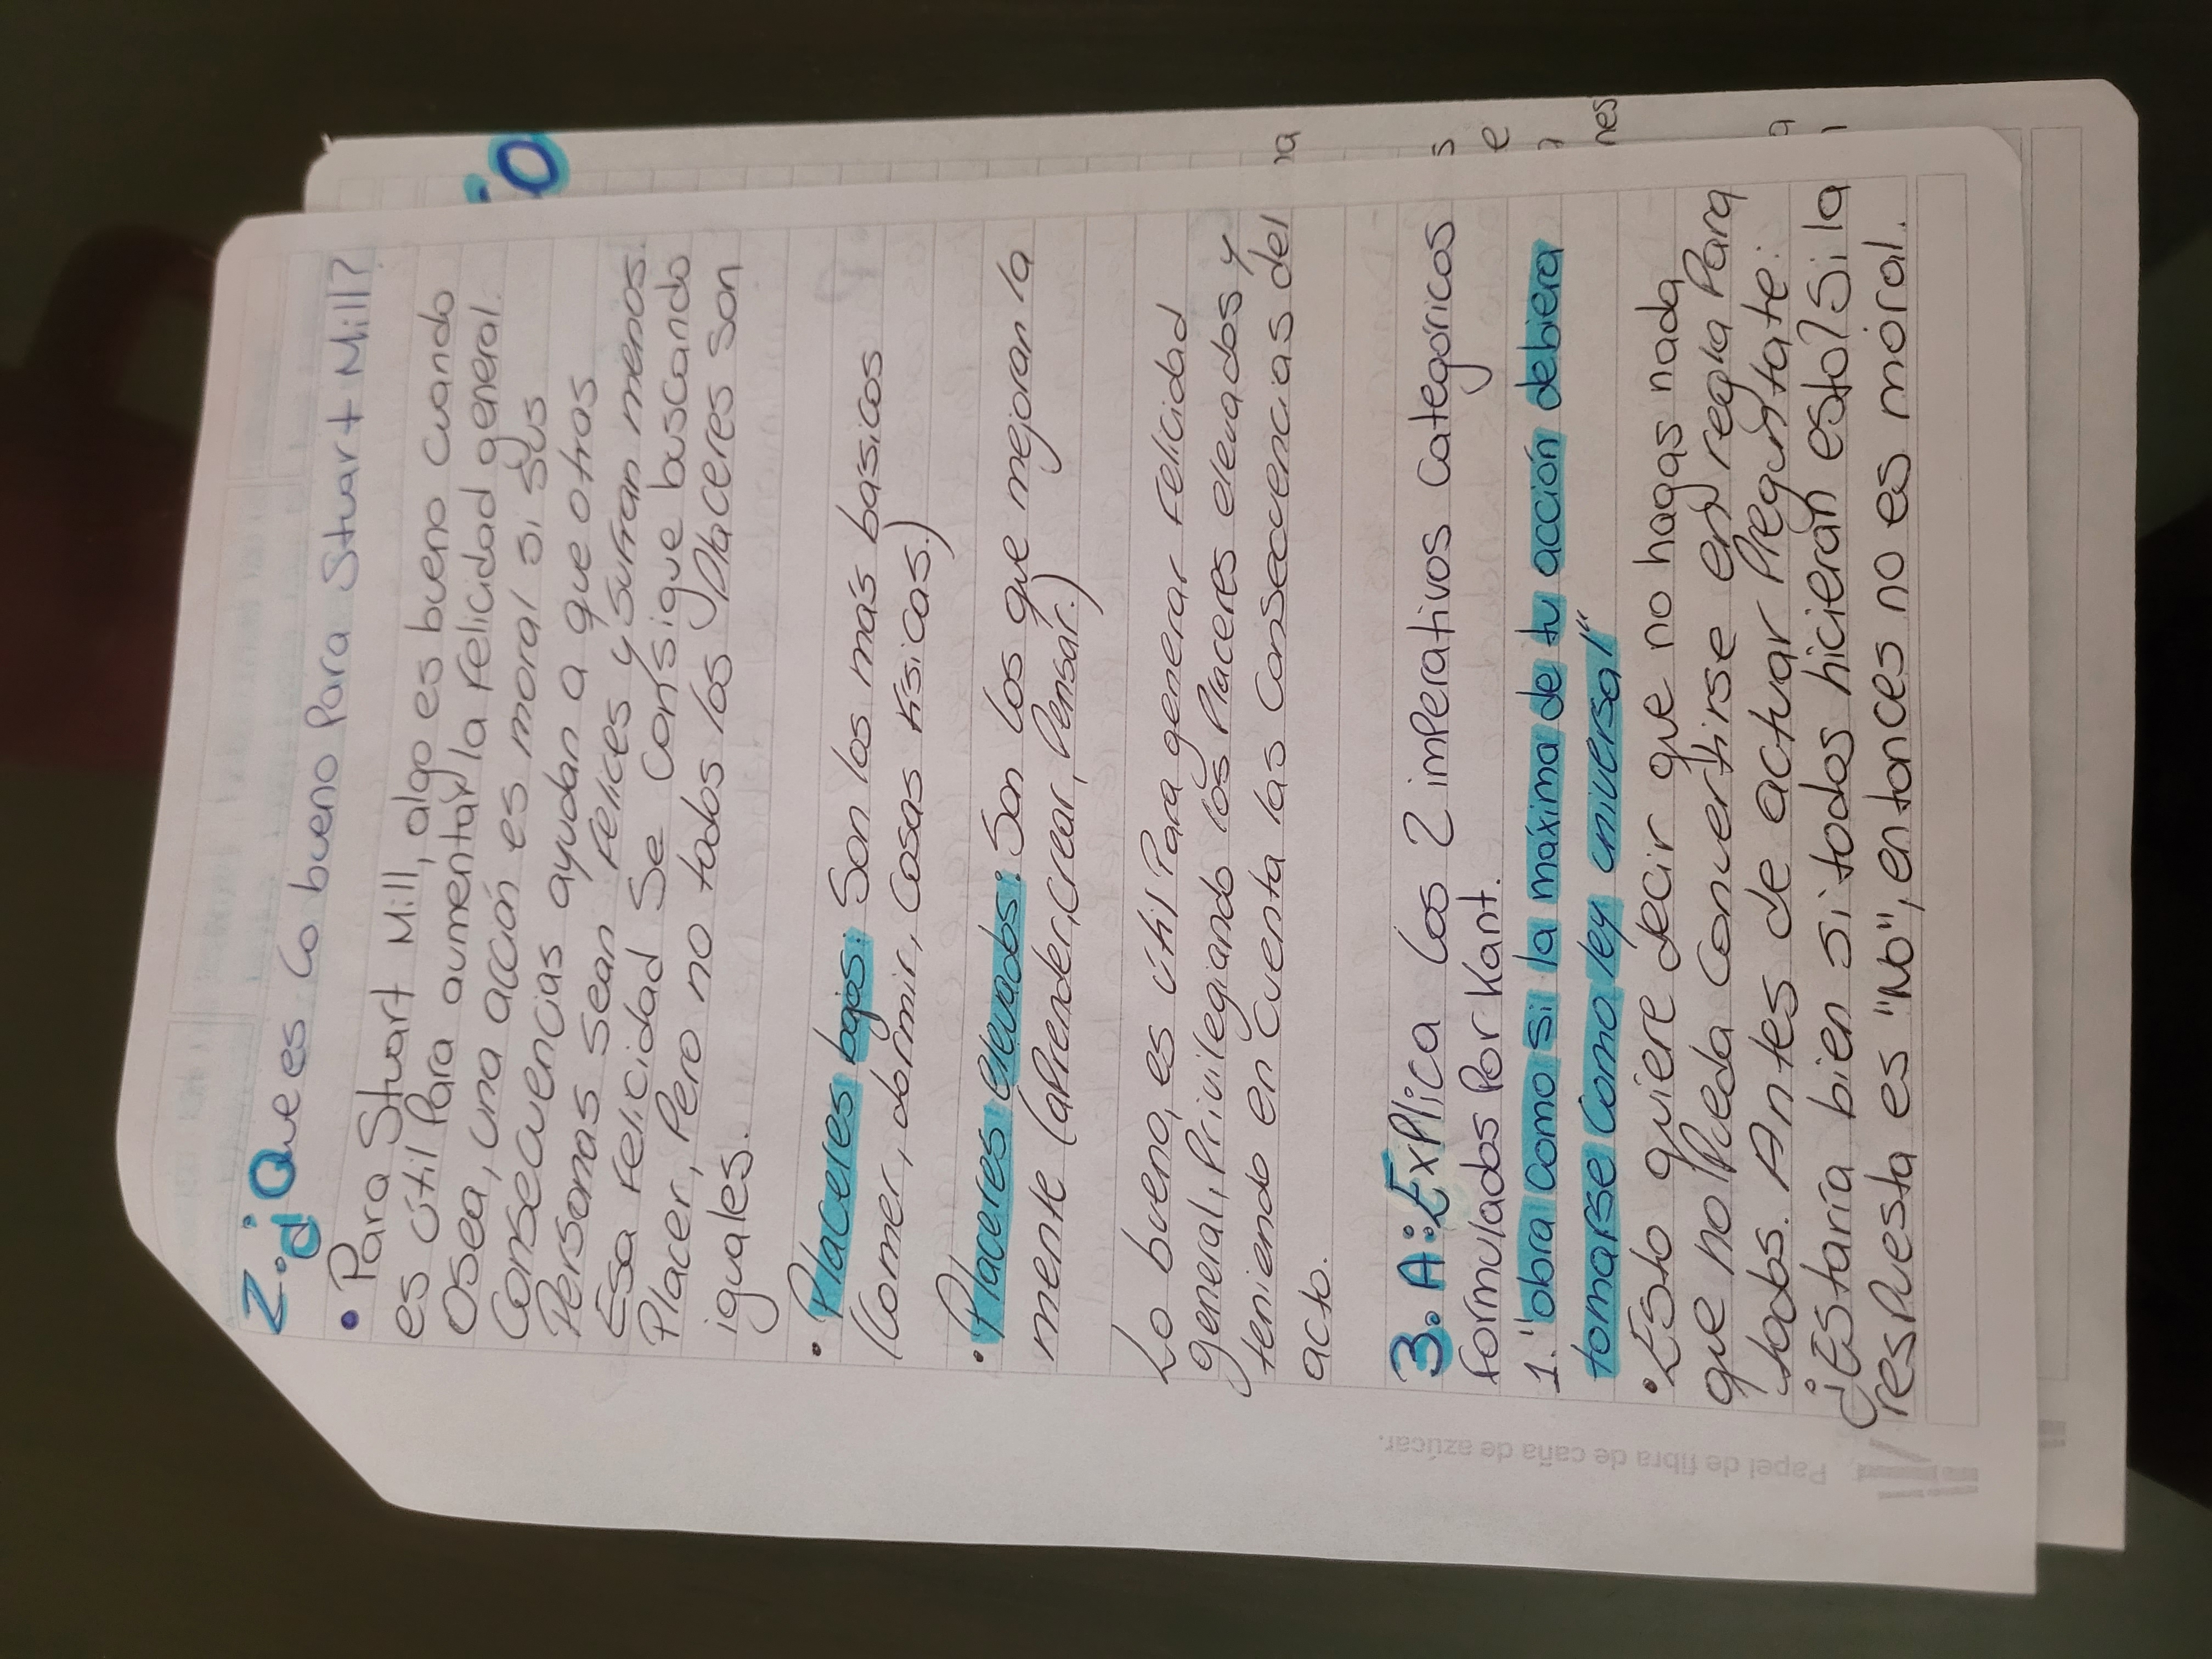 2. ¿Que es lo bueno Para Stuart Mill?
• Para Stuart Mill, algo es bueno cuando
es útil Para aumentar la Felicidad general.
Osea, una acción es moral si sus
Consecuencias ayudan a que otras
Personas sean Felices y sufran menos.
Esa Felicidad Se Consigue buscando
Placer, Pero no todos los Placeres son
iguales.
• Placeres bajos: Son los más básicos
(Comer, dormir, Cosas Físicas.)
• Placeres elevados: Son los que mejoran la
mente (aprender, Crear, Pensar.)
Lo bueno, es útil Para generar Felicidad
general, Privilegiando los Placeres elevados y
teniendo en Cuenta las Consecuencias del
acto.
3. A: Explica los 2 imperativos Categóricos
formulados Por Kant.
1. "obra Como si la máxima de tu acción debiera
tomarse Como ley universal"
• Esto quiere decir que no hagas nada
que no Pueda Convertirse en regla Para
todos. Antes de actuar Preguntate:
¿Estaría bien si todos hicieran esto? Si la
respuesta es "No", entonces no es moral.
Papel de fibra de caña de azúcar.
ia
s
e
nes
a